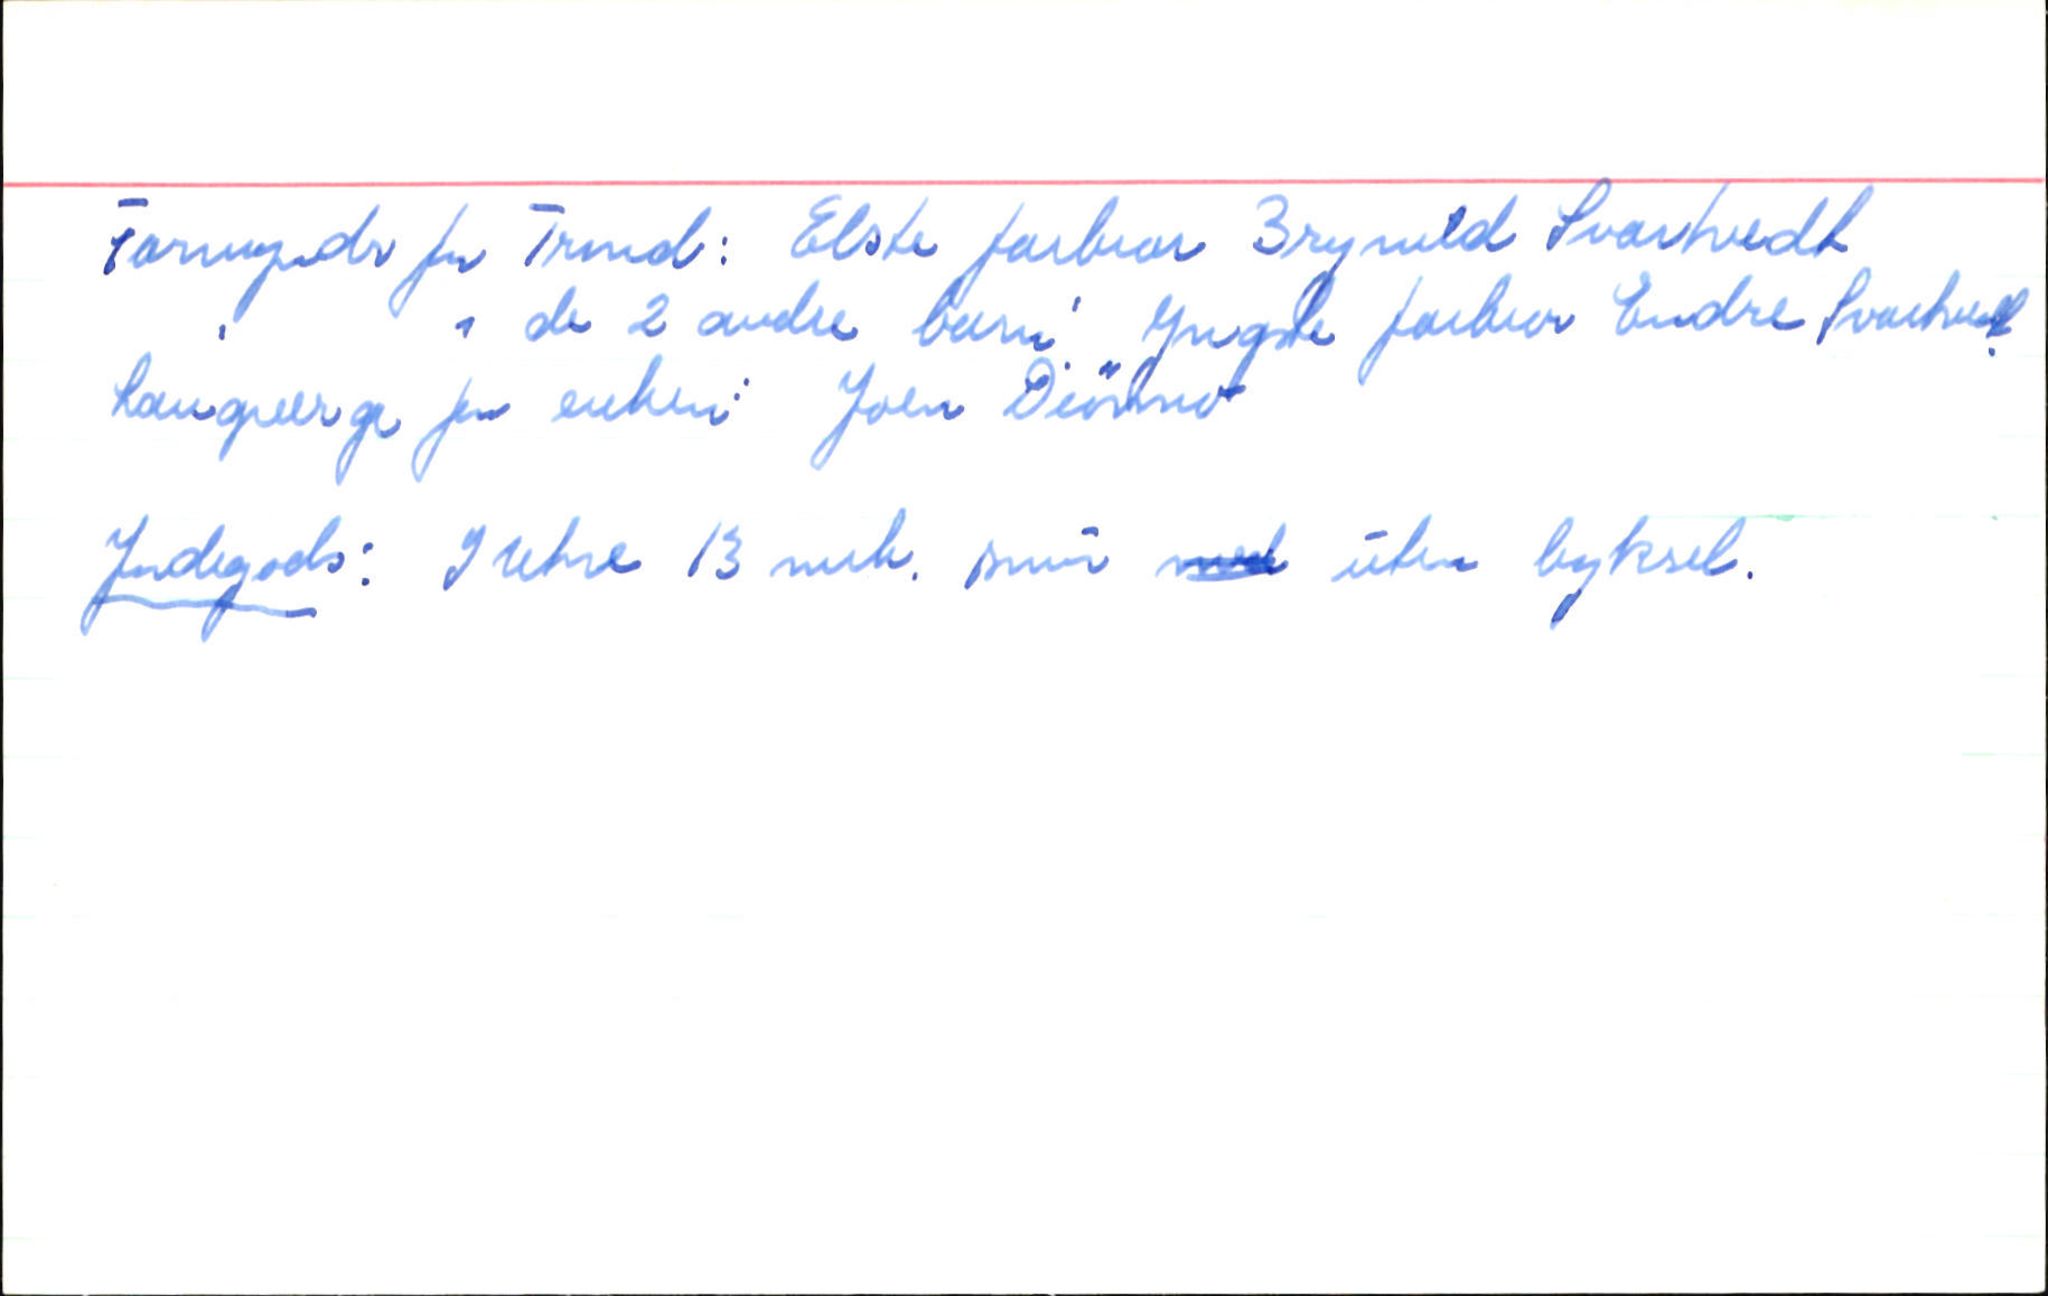 Formynder for Trond: Elste farbror Brynild Svartvedt
" " de 2 andre barn: Yngste farbror Endre Svartvedt
Laugverge for enken: Joen Diønno
Jordegods: I Uthre 13 mrk. smør med uten byksel.